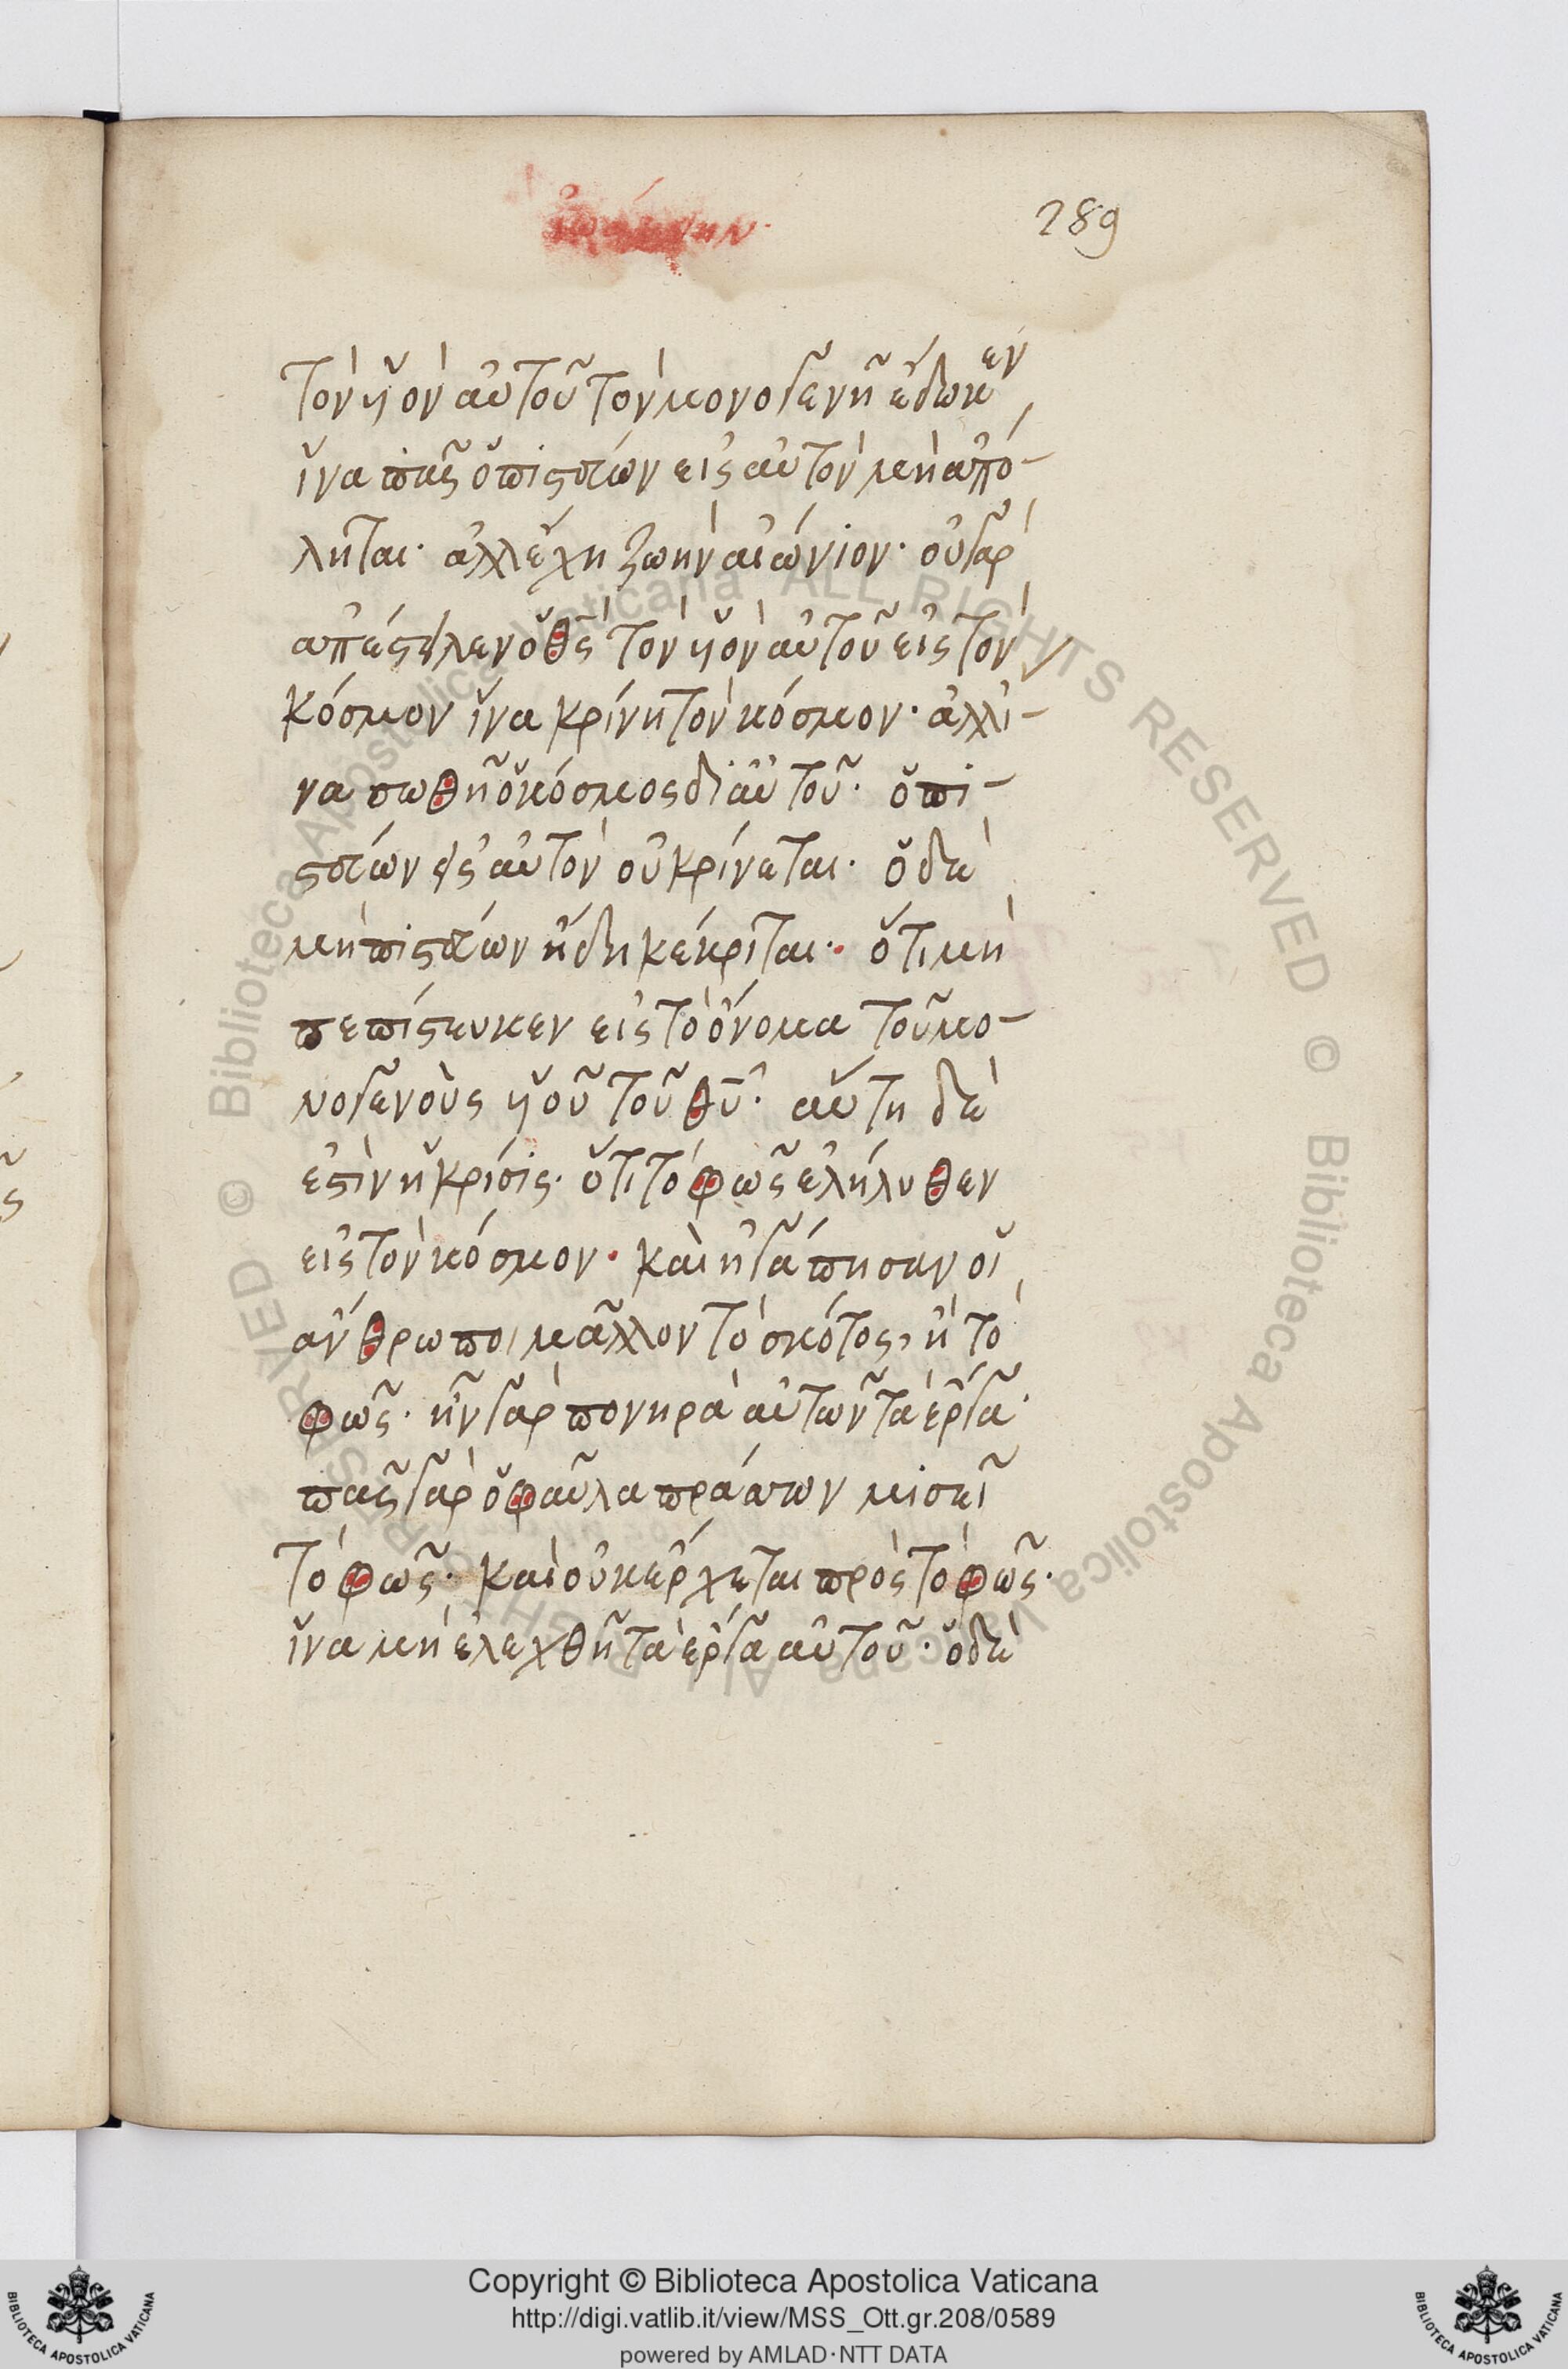 ἰωάννην
289
τὸν ὑὸν αὐτοῦ τὸν μονογενῆ ἔδωκεν
ἵνα πᾶς ὁ πιστεύων εἰς αὐτὸν μὴ ἀπό-
ληται· ἀλλ ἔχη ζωὴν αἰώνιον· οὐ γὰρ
ἀπέστειλεν ὁ θς τὸν ὑὸν αὐτοῦ εἰς τὸν
κόσμον ἵνα κρίνη τὸν κόσμον· ἀλλ ἵ-
να σωθῆ ὁ κόσμος δι αὐτοῦ· ὁ πι-
στεύων εἰς αὐτὸν οὐ κρίνεται· ὁ δὲ
μὴ πιστεύων ἤδη κέκριται· ὅτι μὴ
πεπίστευκεν εἰς τὸ ὄνομα τοῦ μο-
νογενοὺς ὑοῦ τοῦ θυ· αὕτη δὲ
ἐστὶν ἡ κρίσις· ὅτι τὸ φῶς ἐλήλυθεν
εἰς τὸν κόσμον· καὶ ἠγάπησαν οἱ
ἄνθρωποι μᾶλλον τὸ σκότος, ἢ τὸ
φῶς· ἦν γὰρ πονηρὰ αὐτῶν τὰ ἔργα·
πᾶς γὰρ ὁ φαῦλα πράττων μισεῖ
τὸ φῶς· καὶ οὐκ ἔρχεται πρὸς τὸ φῶς·
ἵνα μὴ ἐλεχθῆ τὰ ἔργα αὐτοῦ· ὁ δὲ
© Biblioteca Apostolica Vaticana ALL RIGHTS RESERVED © Biblioteca Apostolica Vaticana ALL RIGHTS RESERVED
Copyright © Biblioteca Apostolica Vaticana
http://digi.vatlib.it/view/MSS_Ott.gr.208/0589
powered by AMLAD·NTT DATA
BIBLIOTECA APOSTOLICA VATICANA
BIBLIOTECA APOSTOLICA VATICANA